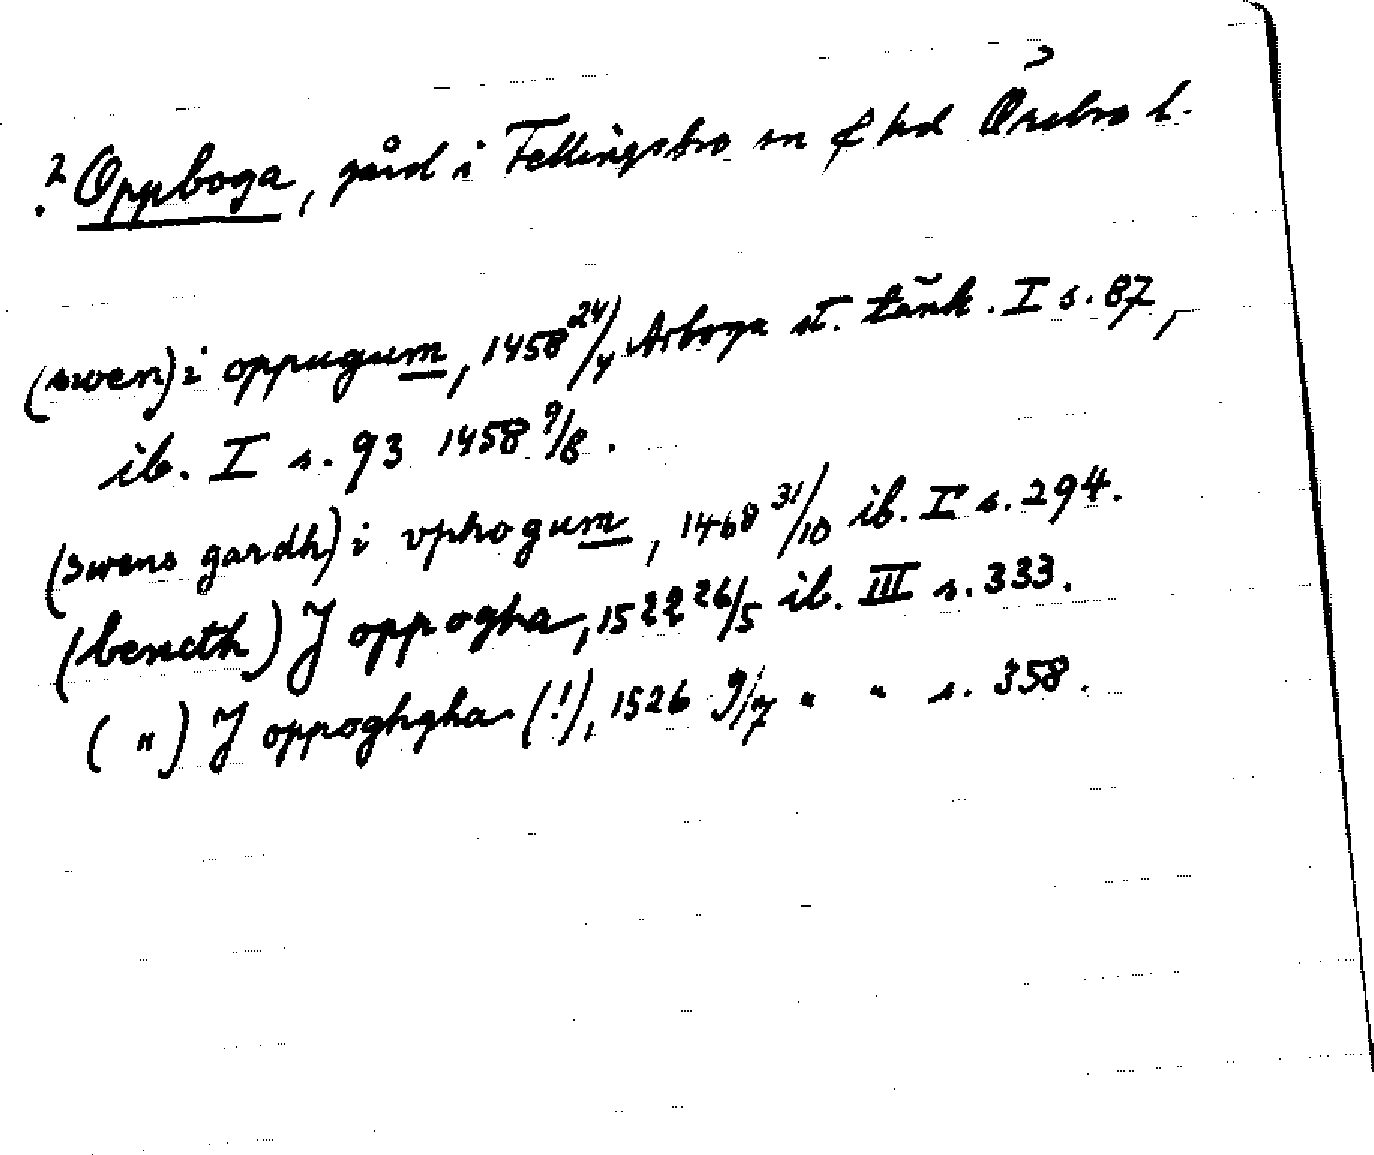 ? Oppboga, gård i Fellingsbro sn & hd Örebro l.
(swen) i oppugum, 1458 24/4 Arboga st. tänk. I s. 87,
ib. I s. 93 1458 9/8.
(swens gardh) i vphogum, 1468 31/10 ib. I s. 294.
(beneth) J oppogha, 1522 26/5 ib. III s. 333.
( " ) J oppoghgha (!), 1526 9/7 " " s. 358.